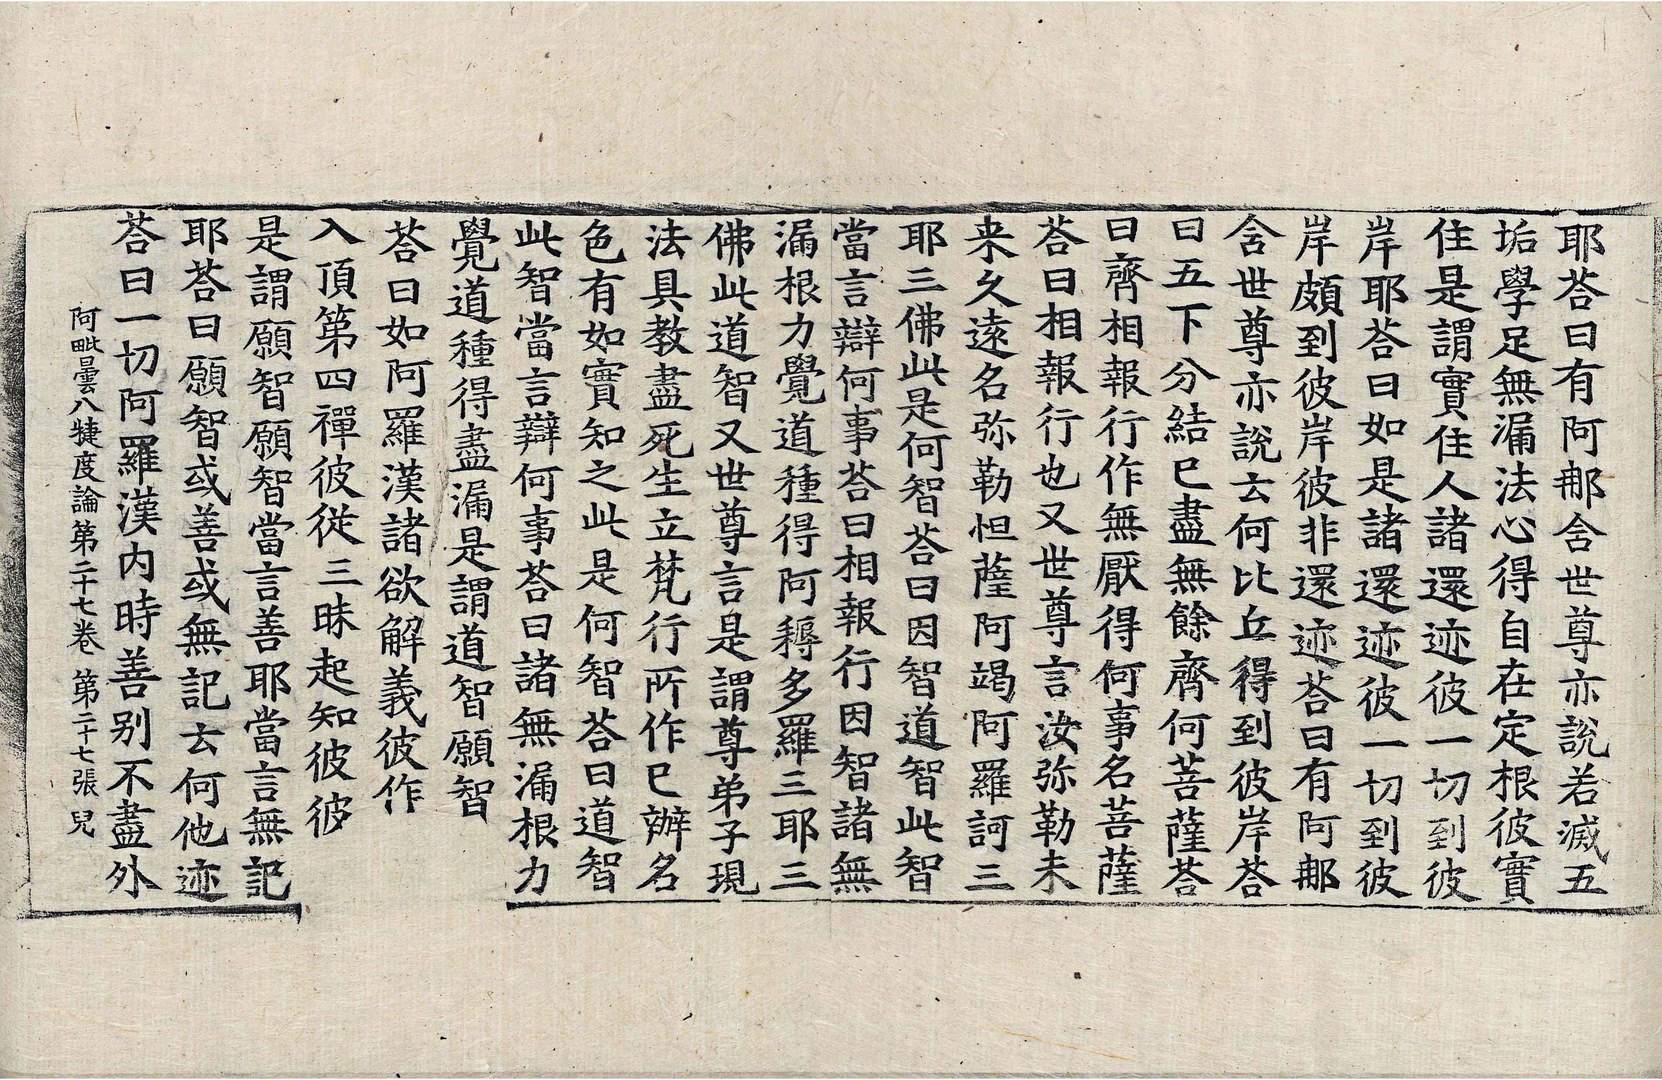 耶荅曰有阿那舍世尊亦說若滅五
垢學足無漏法心得自在定根彼實
住是謂實住人諸還迹彼一切到彼
岸耶荅曰如是諸還迹彼一切到彼
岸頗到彼岸彼非還迹荅曰有阿那
含世尊亦說云何比丘得到彼岸荅
曰五下分結已盡無餘齊何菩薩荅
曰齊相報行作無厭得何事名菩薩
荅曰相報行也又世尊言汝弥勒未
来久遠名弥勒怛薩阿竭阿羅訶三
耶三佛此是何智荅曰因智道智此智
當言辯何事荅曰相報行因智諸無
漏根力覺道種得阿耨多羅三耶三
佛此道智又世尊言是謂尊弟子現
法具教盡死生立梵行所作已辦名
色有如實知之此是何智荅曰道智
此智當言辯何事荅曰諸無漏根力
覺道種得盡漏是謂道智願智
荅曰如阿羅漢諸欲解義彼作
入頂第四禪彼從三昧起知彼彼
是謂願智願智當言善耶當言無記
耶荅曰願智或善或無記云何他迹
荅曰一切阿羅漢內時善別不盡外
阿毗曇八揵度論第二十七卷 第二十七張 兒